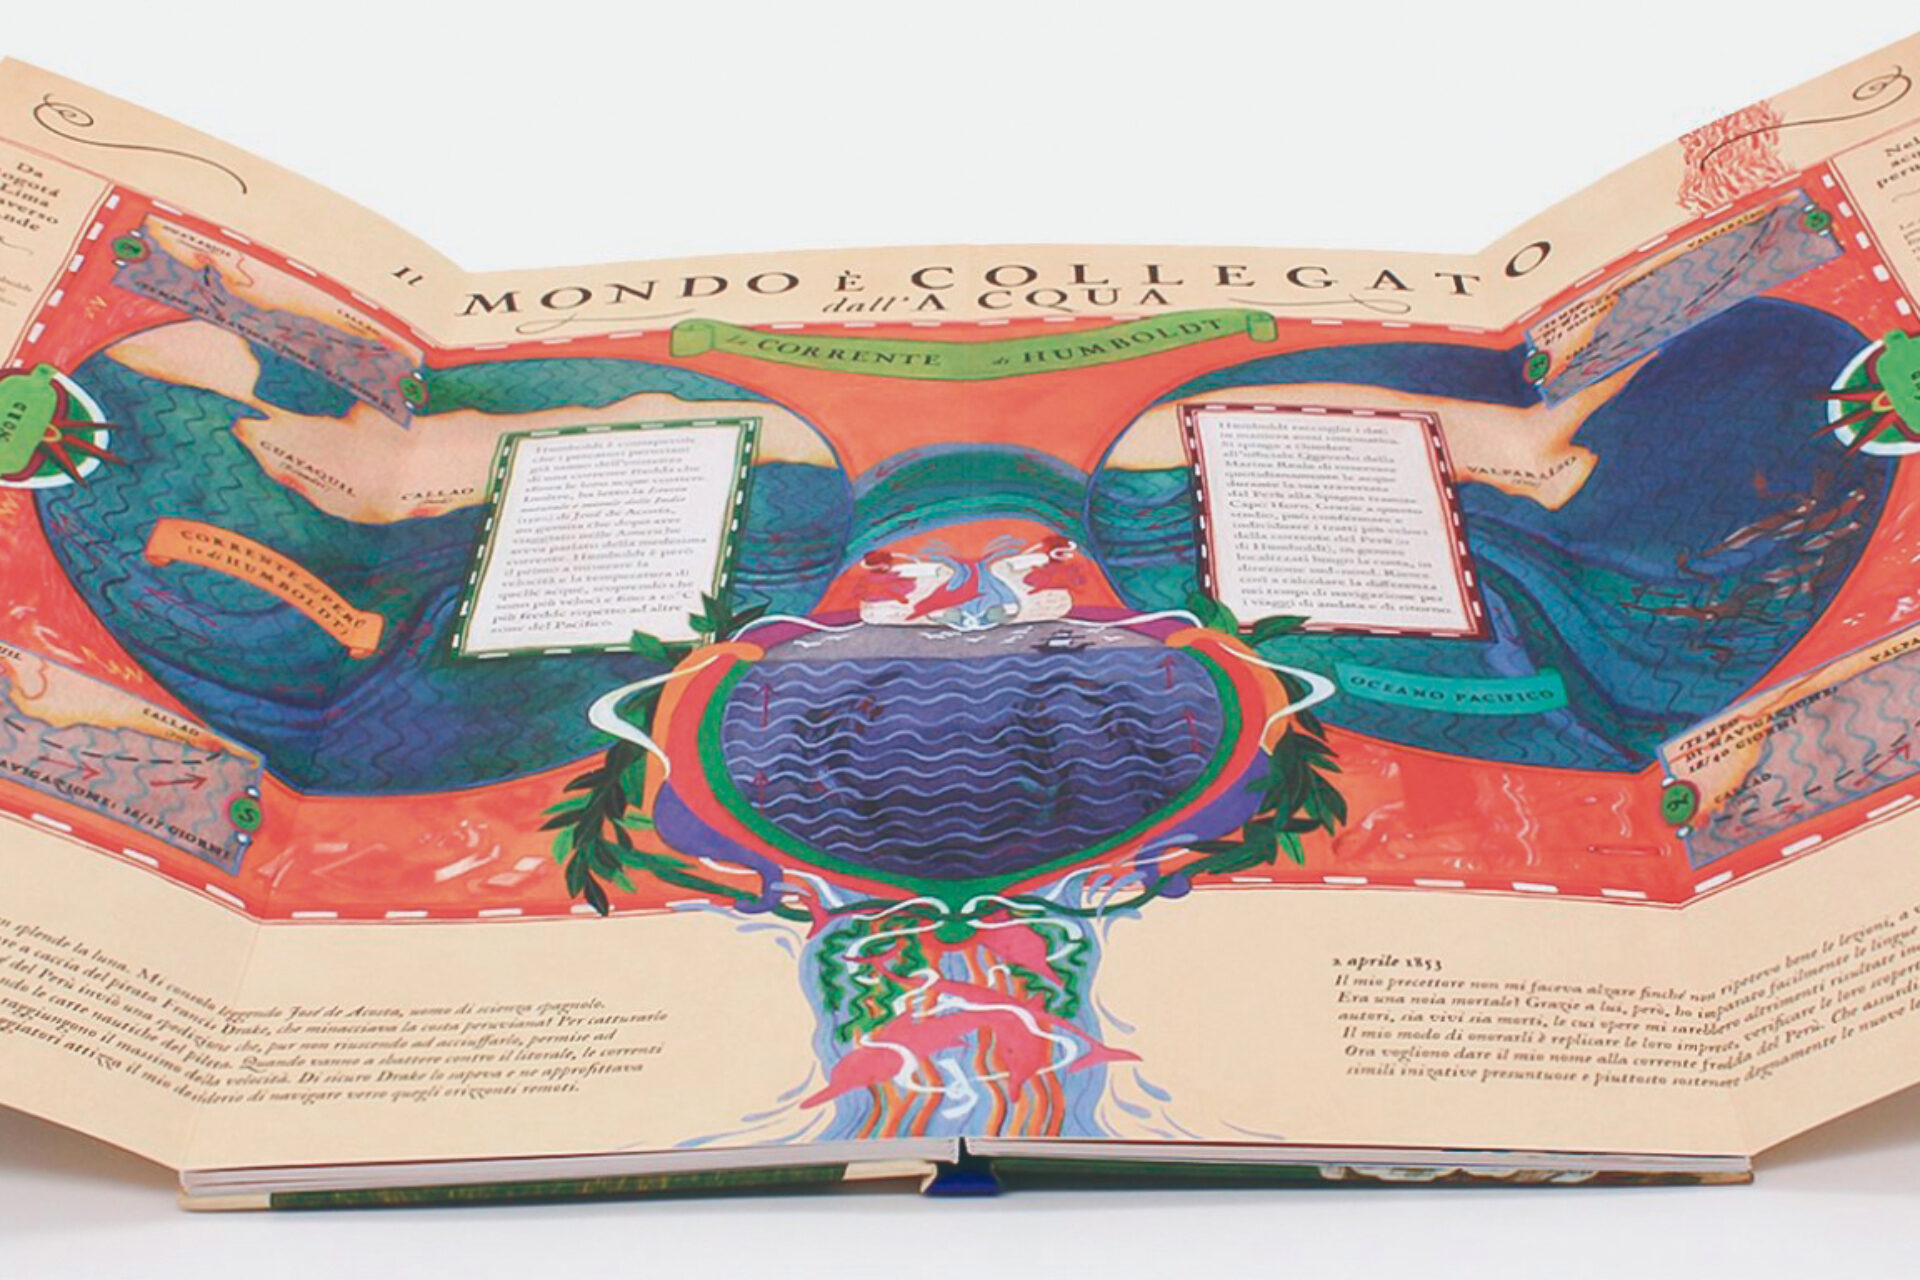 Il MONDO È COLLEGATO
dall'ACQUA
la CORRENTE di HUMBOLDT
Da
Lima
NORD
GUAYAQUIL
CALLAO
TEMPO DI NAVIGAZIONE:
VALPARAÍSO
CALLAO
GUAYAQUIL
CALLAO
CORRENTE del PERÙ
(o di HUMBOLDT)
Humboldt è consapevole
che i pescatori peruviani
già sanno dell'esistenza
di una corrente fredda che
Inoltre, ha letto la
(1590) di José de Acosta,
un gesuita che dopo aver
viaggiato nelle Americhe
aveva parlato della medesima
corrente. Humboldt è però
il primo a misurare la
velocità e la temperatura di
quelle acque, scoprendo che
sono più veloci e fino a 10°C
più fredde rispetto ad altre
zone del Pacifico.
Humboldt raccoglie i dati
in maniera assai sistematica.
Si spinge a chiedere
all'ufficiale Quevedo della
Marina Reale di misurare
quotidianamente le acque
durante la sua traversata
dal Perù alla Spagna tramite
Capo Horn. Grazie a questo
studio, può confermare e
individuare i tratti più veloci
della corrente del Perù (o
di Humboldt), in genere
localizzati lungo la costa, in
direzione sud-nord. Riesce
così a calcolare la differenza
nei tempi di navigazione per
i viaggi di andata e di ritorno.
VALPARAÍSO
OCEANO PACIFICO
CALLAO
NAVIGAZIONE: 16/17 GIORNI
S
TEMPO
DI NAVIGAZIONE:
CALLAO
N
splende la luna. Mi consolo leggendo José de Acosta, uomo di scienza spagnolo.
a caccia del pirata Francis Drake, che minacciava la costa peruviana! Per catturarlo
del Perù inviò una spedizione che, pur non riuscendo ad acciuffarlo, permise ad
le carte nautiche del pilota. Quando vanno a sbattere contro il litorale, le correnti
raggiungono il massimo della velocità. Di sicuro Drake lo sapeva e ne approfittava
attizza il mio desiderio di navigare verso quegli orizzonti remoti.
2 aprile 1853
Il mio precettore non mi faceva alzare finché non ripetevo bene le lezioni, a
Era una noia mortale! Grazie a lui, però, ho imparato facilmente le lingue
autori, sia vivi sia morti, le cui opere mi sarebbero altrimenti risultate
Il mio modo di onorarli è replicare le loro imprese, verificare le loro
Ora vogliono dare il mio nome alla corrente fredda del Perù. Che
simili iniziative presuntuose e piuttosto sostenere degnamente le nuove